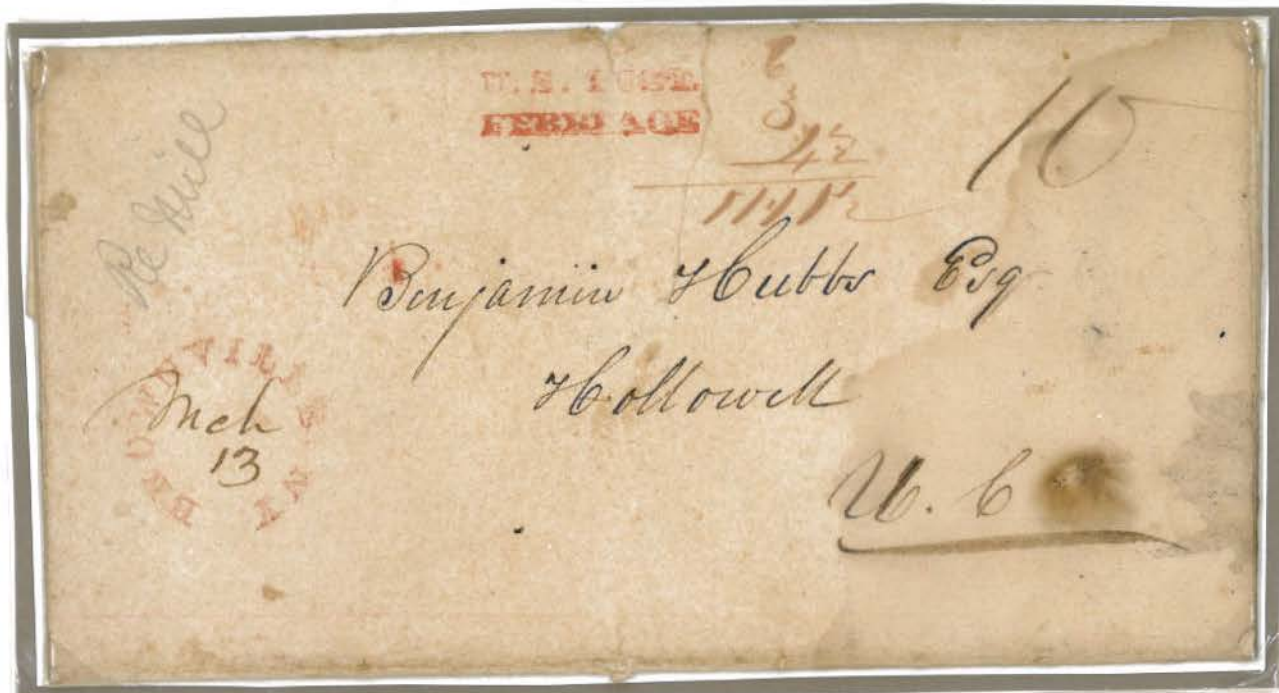 U.S. POST.
FERRIAGE
6
3
4½
11½
10
Re Mill
Benjamin Hubbs Esq
Hollowell
U. C
BROWNVILLE N.Y
Mch
13